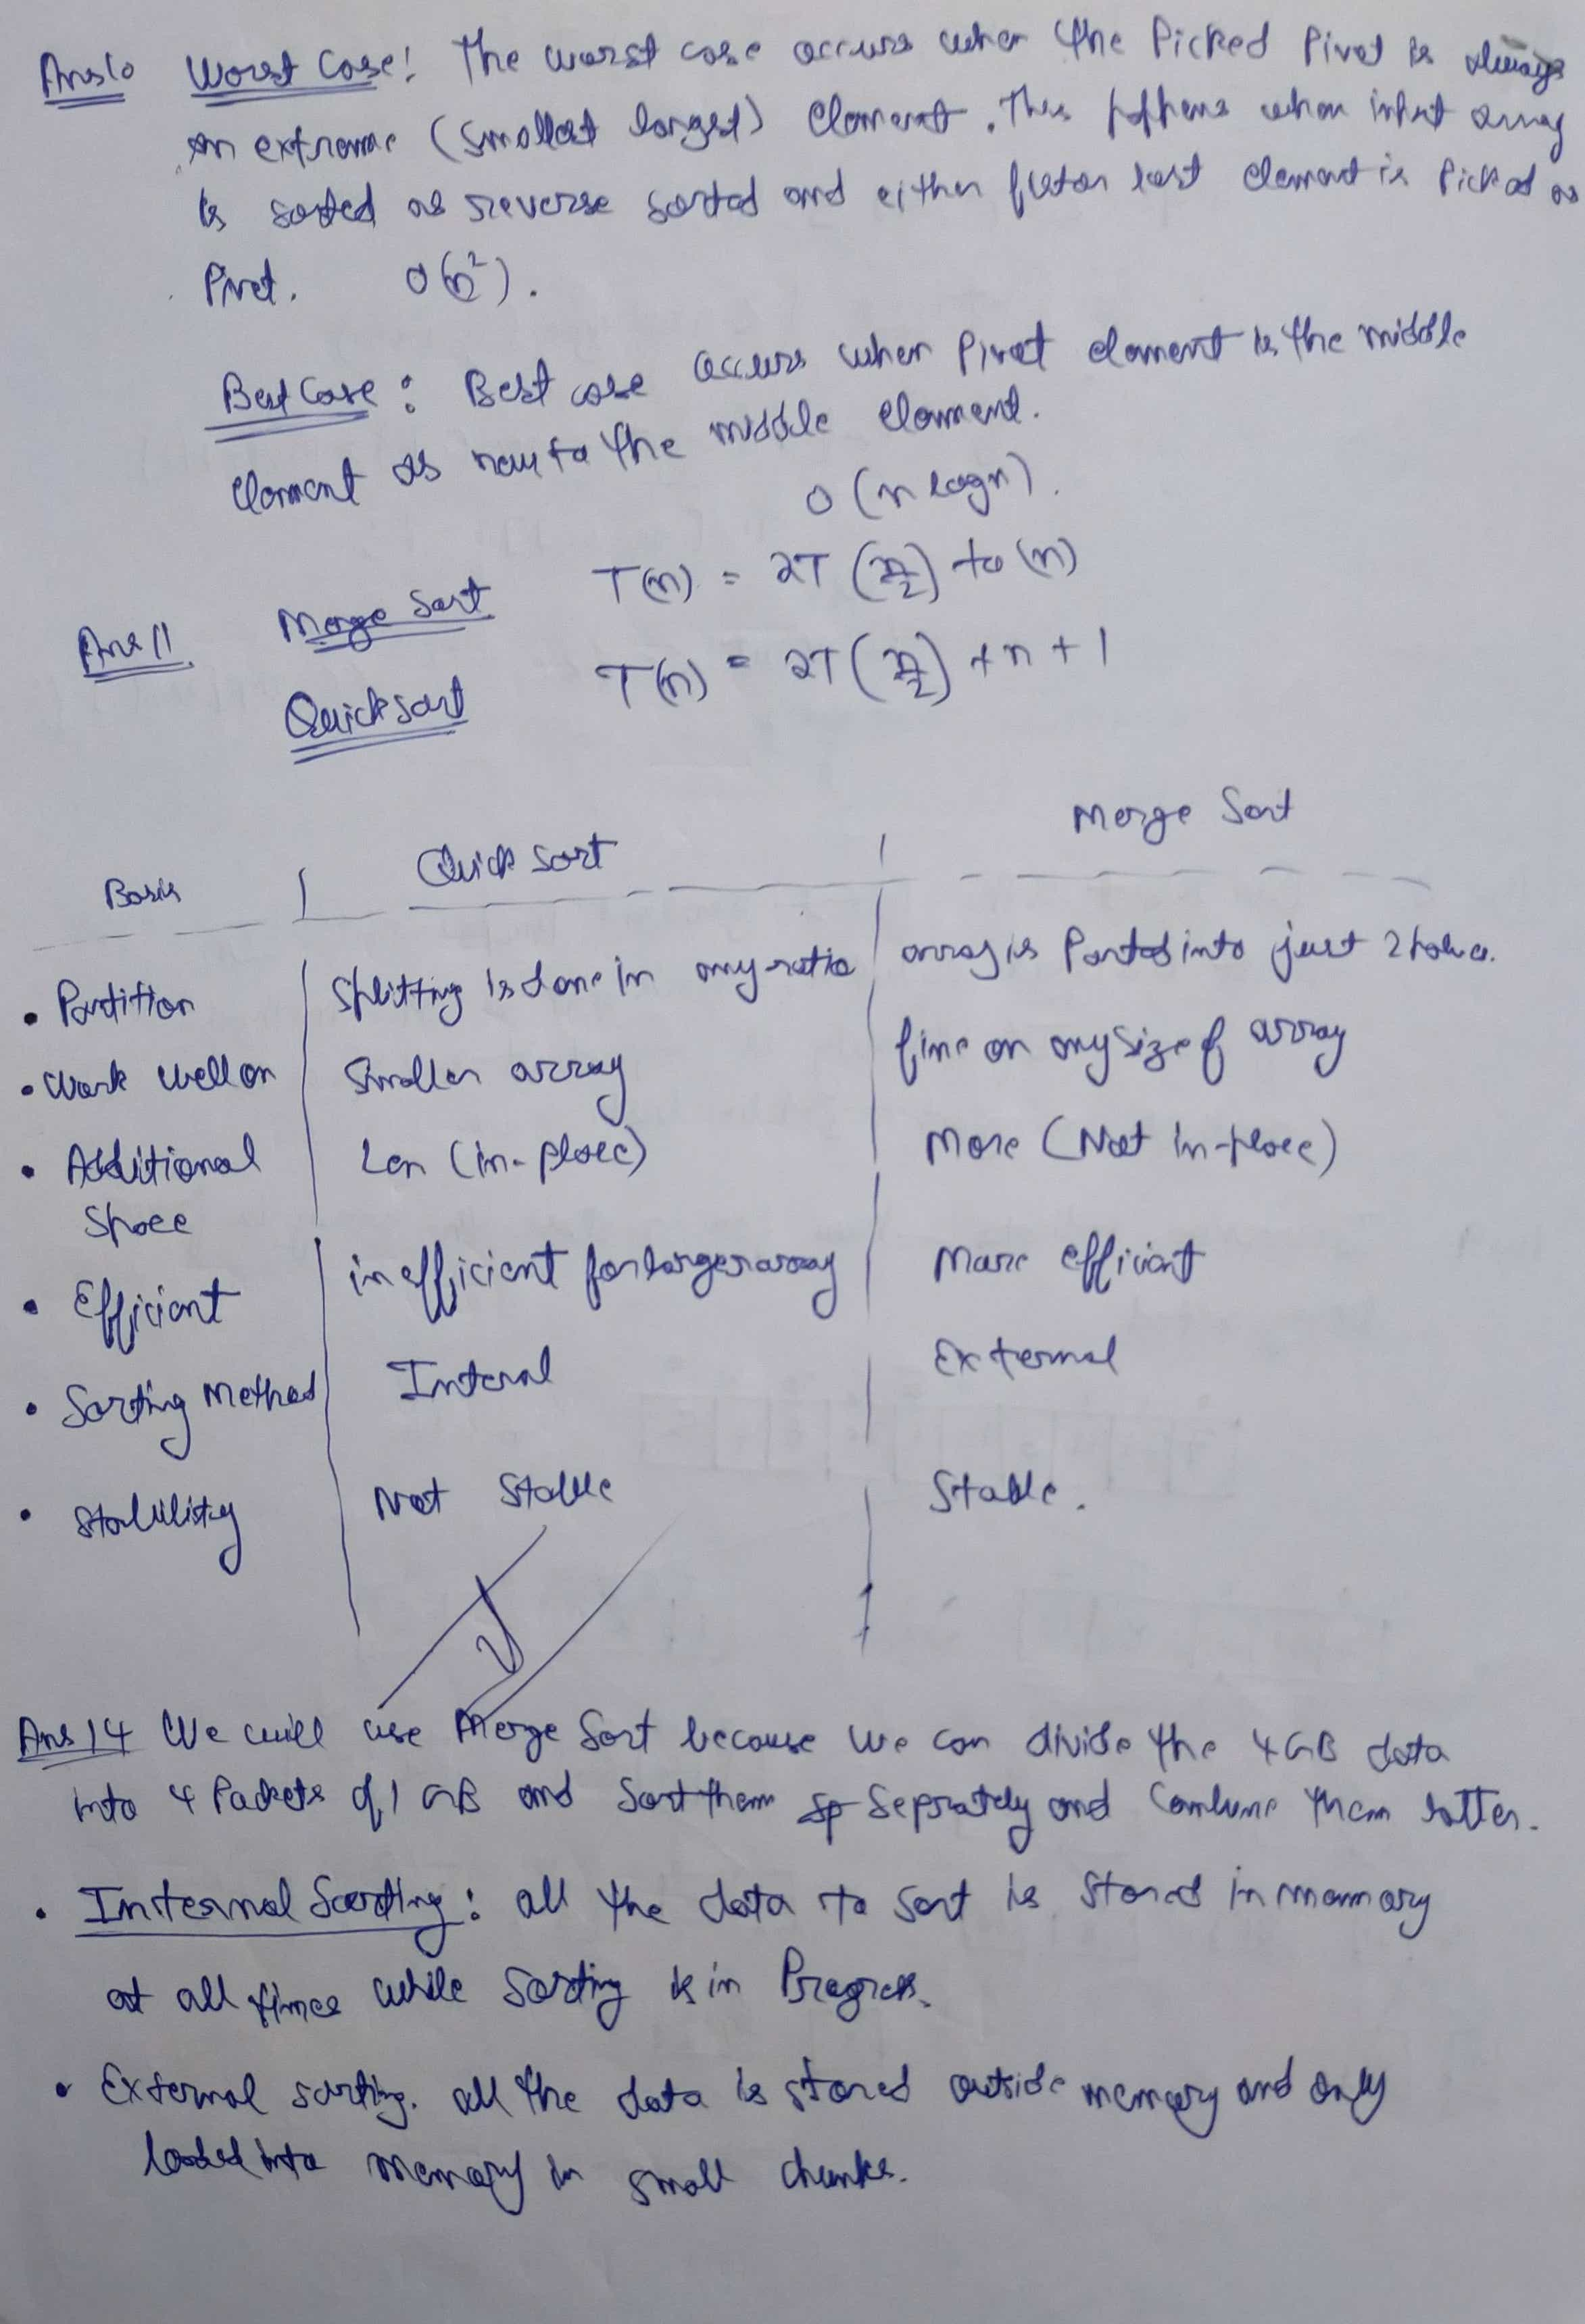 Ans10 Worst Case: The worst case occurs when the Picked Pivot is always
an extreme (smallest largest) element. This happens when input array
is sorted or reverse sorted and either first or last element is Picked as
Pivot. O(n²).
Best Case: Best case occurs when Pivot element is the middle
element or near to the middle element.
O(n logn).
Ans 11 Merge Sort T(n) = 2T(n/2) + O(n)
Quick sort T(n) = 2T(n/2) + n + 1
Basis Quick Sort Merge Sort
• Partition Splitting is done in any ratio array is Parted into just 2 halves.
• Work well on Smaller array fine on any size of array
• Additional Less (in-place) More (Not in-place)
Space
• Efficient inefficient for larger array More efficient
• Sorting Method Internal External
• Stability Not Stable Stable.
Ans 14 We will use Merge Sort because we can divide the 4GB data
into 4 Packets of 1 GB and Sort them Seprately and Combine them latter.
• Internal Sorting: all the data to sort is stored in memory
at all times while Sorting is in Progress.
• External sorting. all the data is stored outside memory and only
loaded into memory in small chunks.